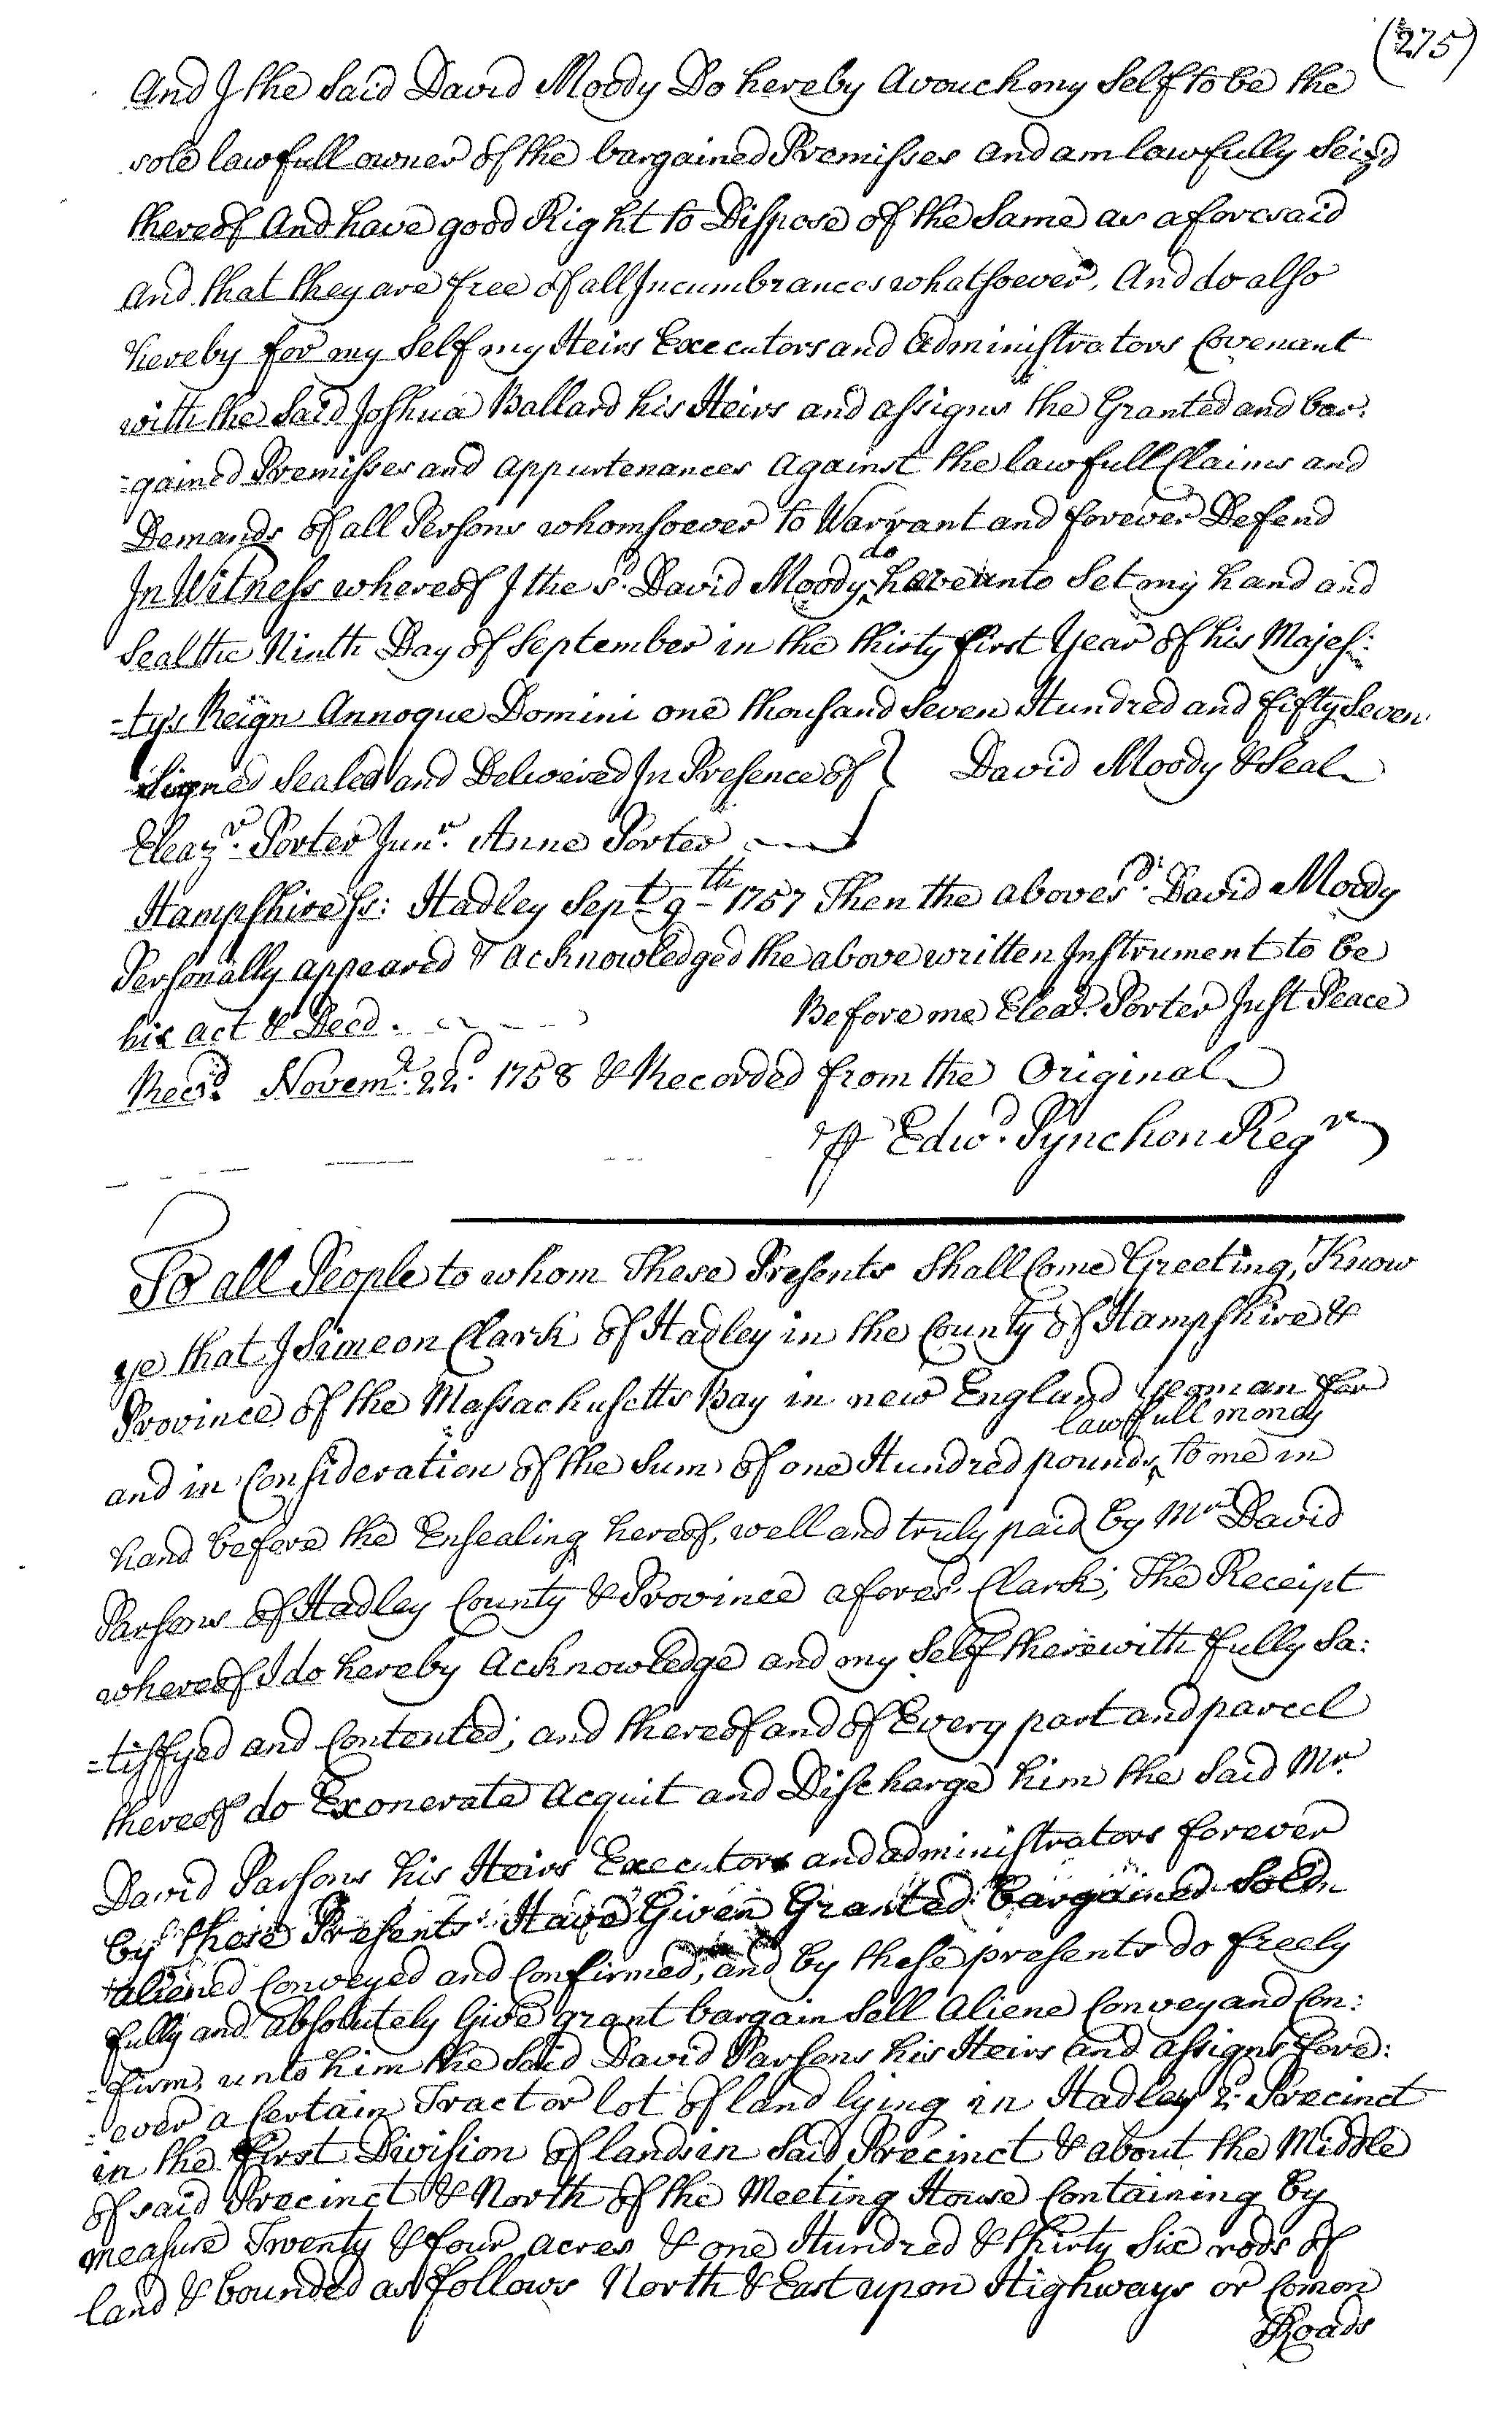 (275)
And I the Said David Moody Do hereby Avouch my Self to be the
sole lawfull owner of the bargained Premisses and am lawfully Seiz'd
thereof And have good Right to Dispose of the Same as aforesaid
And that they are free of all Incumbrances whatsoever, And do also
hereby for my Self my Heirs Executors and Administrators Covenant
with the Said Joshua Ballard his Heirs and assigns the Granted and bar:
=gained Premisses and appurtenances Against the lawfull Claims and
Demands of all Persons whomsoever to Warrant and forever Defend
In Witness whereof I the sd. David Moody do hereunto Set my hand and
Seal the Ninth Day of September in the thirty first Year of his Majes:
=tys Reign Annoque Domini one thousand Seven Hundred and fifty Seven
Signed Sealed and Delivered In Presence of } David Moody & Seal
Eleazr. Porter Junr. Anne Porter
Hampshire ss: Hadley Sept 9th 1757 Then the abovesd. David Moody
Personally appeared & Acknowledged the above written Instrument to be
his act & Deed. Before me Eleazr. Porter Just Peace
Recd. Novemr. 22d. 1758 & Recorded from the Original
pr Edwd. Pynchon Regr
To all People to whom These Presents Shall Come Greeting, Know
ye that I Simeon Clark of Hadley in the County of Hampshire &
Province of the Massachusetts Bay in new England yeoman for
and in Consideration of the Sum of one Hundred pounds lawfull money to me in
hand before the Ensealing hereof, well and truly paid by Mr David
Parsons of Hadley County & Province aforesd. Clark; The Receipt
whereof I do hereby Acknowledge and my Self therewith fully Sa:
=tisfyed and Contented; and thereof and of Every part and parcel
thereof do Exonerate Acquit and Discharge him the Said Mr.
David Parsons his Heirs Executors and administrators forever
by these Presents Have Given Granted bargained Sold
aliened Conveyed and Confirmed, and by these presents do freely
fully and absolutely Give grant bargain Sell Aliene Convey and Con:
=firm, unto him the Said David Parsons his Heirs and assigns fore:
=ever a Certain Tract or lot of land lying in Hadley 2d. Precinct
in the First Division of lands in Said Precinct & about the Middle
of said Precinct & North of the Meeting House Containing by
measure Twenty & four acres & one Hundred & thirty Six rods of
land & bounded as follows North & East upon Highways or Comon
Roads